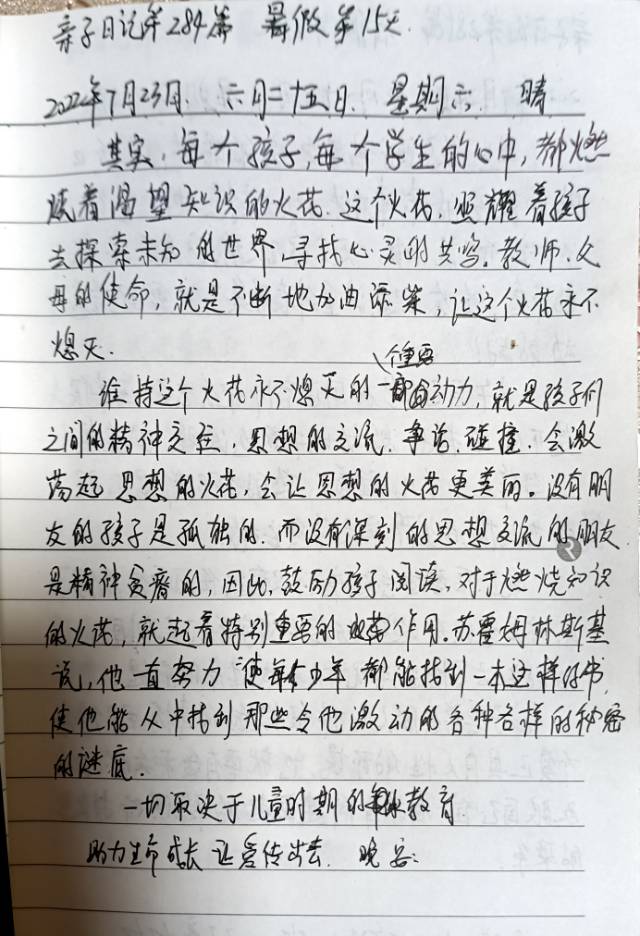 亲子日记第284篇 暑假第15天.
2022年7月23日. 六月二十五日. 星期六. 晴
其实,每个孩子,每个学生的心中,都燃
烧着渴望知识的火花.这个火花.照耀着孩子
去探索未知的世界寻找心灵的共鸣.教师.父
母的使命,就是不断地加油添柴,让这个火花永不
熄灭.
维持这个火花永不熄灭的一个重要动力,就是孩子们
之间的精神交往.思想的交流.争论.碰撞.会激
荡起思想的火花,会让思想的火花更美的。没有朋
友的孩子是孤独的.而没有深刻的思想交流的朋友
是精神贫瘠的,因此,鼓励孩子阅读,对于燃烧知识
的火花,就起着特别重要的作用.苏霍姆林斯基
说,他一直努力“使每个少年都能找到一本这样的书,
使他能从中找到那些令他激动的各种各样的秘密
的谜底.
一切取决于儿童时期的教育
助力生命成长让爱传出去. 晚安: